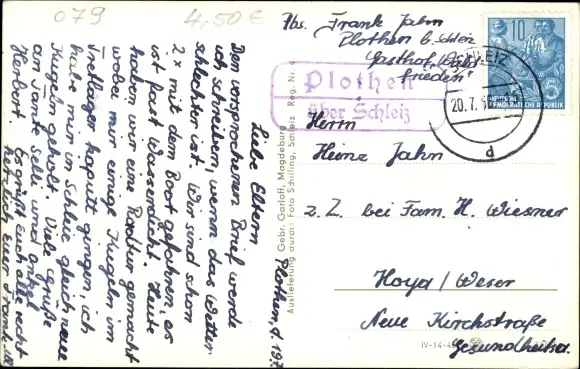 079
4,50 €
Abs. Frank Jahn
Plothen b. Schleiz
Gasthof "Zum
Frieden"
Plothen
über Schleiz
SCHLEIZ
20.7.
d
10
5
DEUTSCHE DEMOKRATISCHE REPUBLIK
Herrn
Heinz Jahn
z. Z. bei Fam. H. Wiesner
Hoya / Weser
Neue Kirchstraße
Gesundheitsa.
IV-14-4
Gebr. Garloff, Magdeburg
Auslieferung durch: Foto Schilling, Schleiz Reg. Nr.
Plothen, d. 19.7.
Liebe Eltern
Den versprochenen Brief werde
ich schreiben, wenn das Wetter
schlechter ist. Wir sind schon
2 x mit dem Boot gefahren, es
ist fast wasserdicht. Heute
haben wir eine Radtour gemacht
wobei mir einige Kugeln im
Tretlager kaputt gingen, ich
habe mir in Schleiz gleich neue
Kugeln geholt. Viele Grüße
an Tante Selli und Onkel
Herbert. Es grüßt Euch alle recht
herzlich Euer Frank